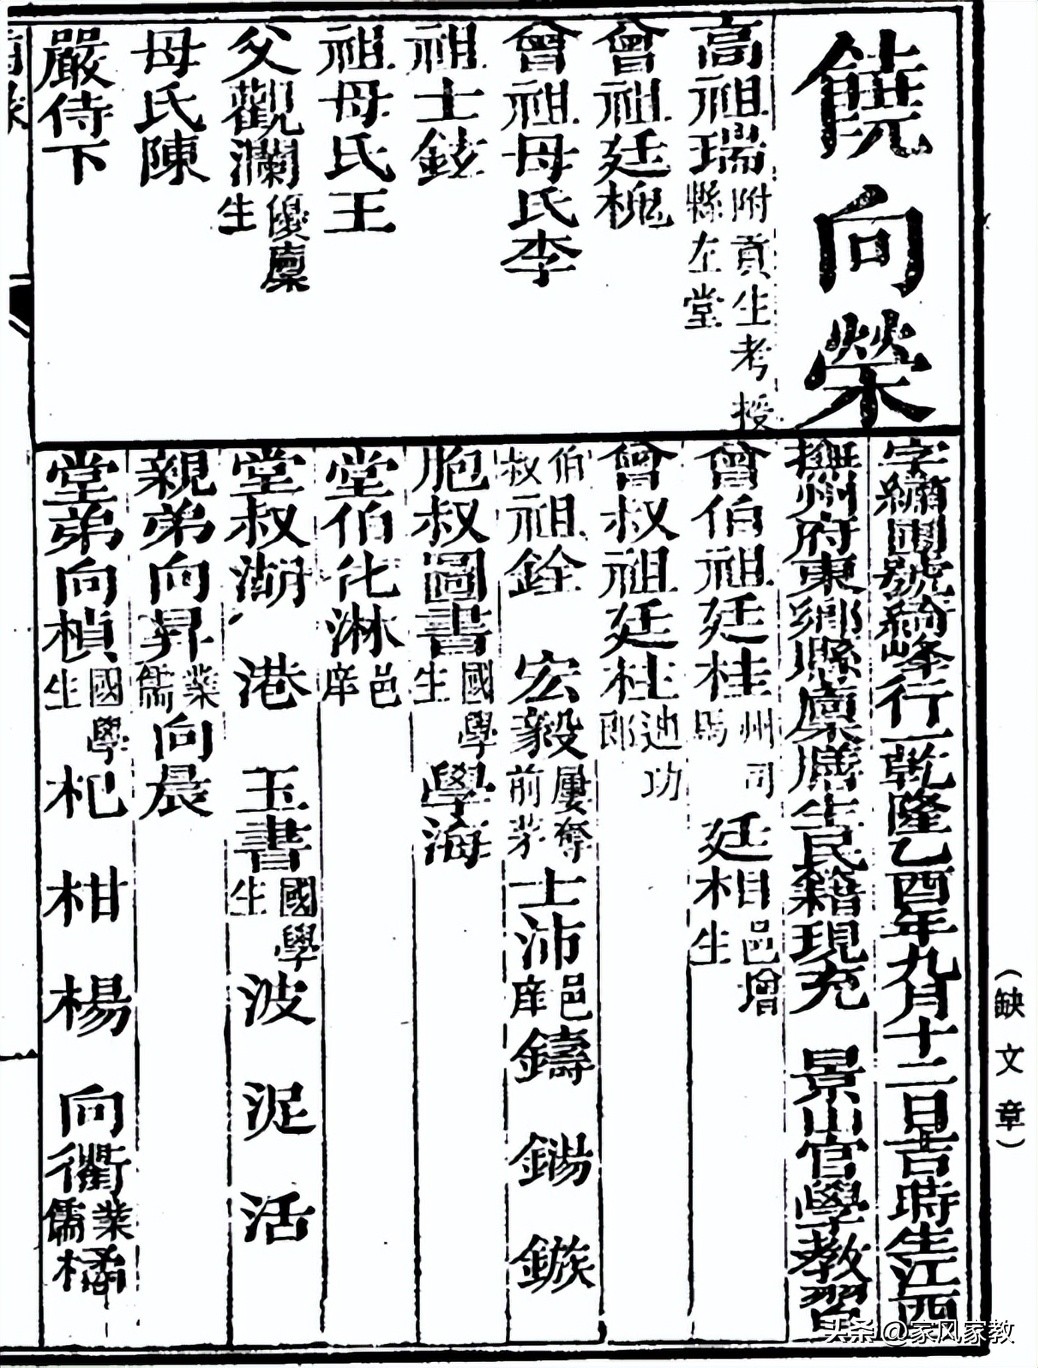 饒向榮
高祖瑞附貢生考授縣左堂
曾祖廷槐
曾祖母氏李
祖士鉉
祖母氏王
父觀瀾優廩生
母氏陳
嚴侍下
字繡圃號綺峰行一乾隆乙酉年九月十二日吉時生江西
撫州府東鄉縣廩膳生民籍現充 景山官學教習
曾伯祖廷桂州司馬 廷相邑增生
曾叔祖廷柱迪功郎
伯叔祖銓 宏毅屢奪前茅 士沛邑庠 鑄 鍚 鏃
胞叔圖書國學生 學海
堂伯化淋邑庠
堂叔湖 港 玉書國學生 波 泥 活
親弟向昇業儒 向晨
堂弟向楨國學生 杞 柑 楊 向衢業儒 橘
(缺文章)
头条 @家风家教